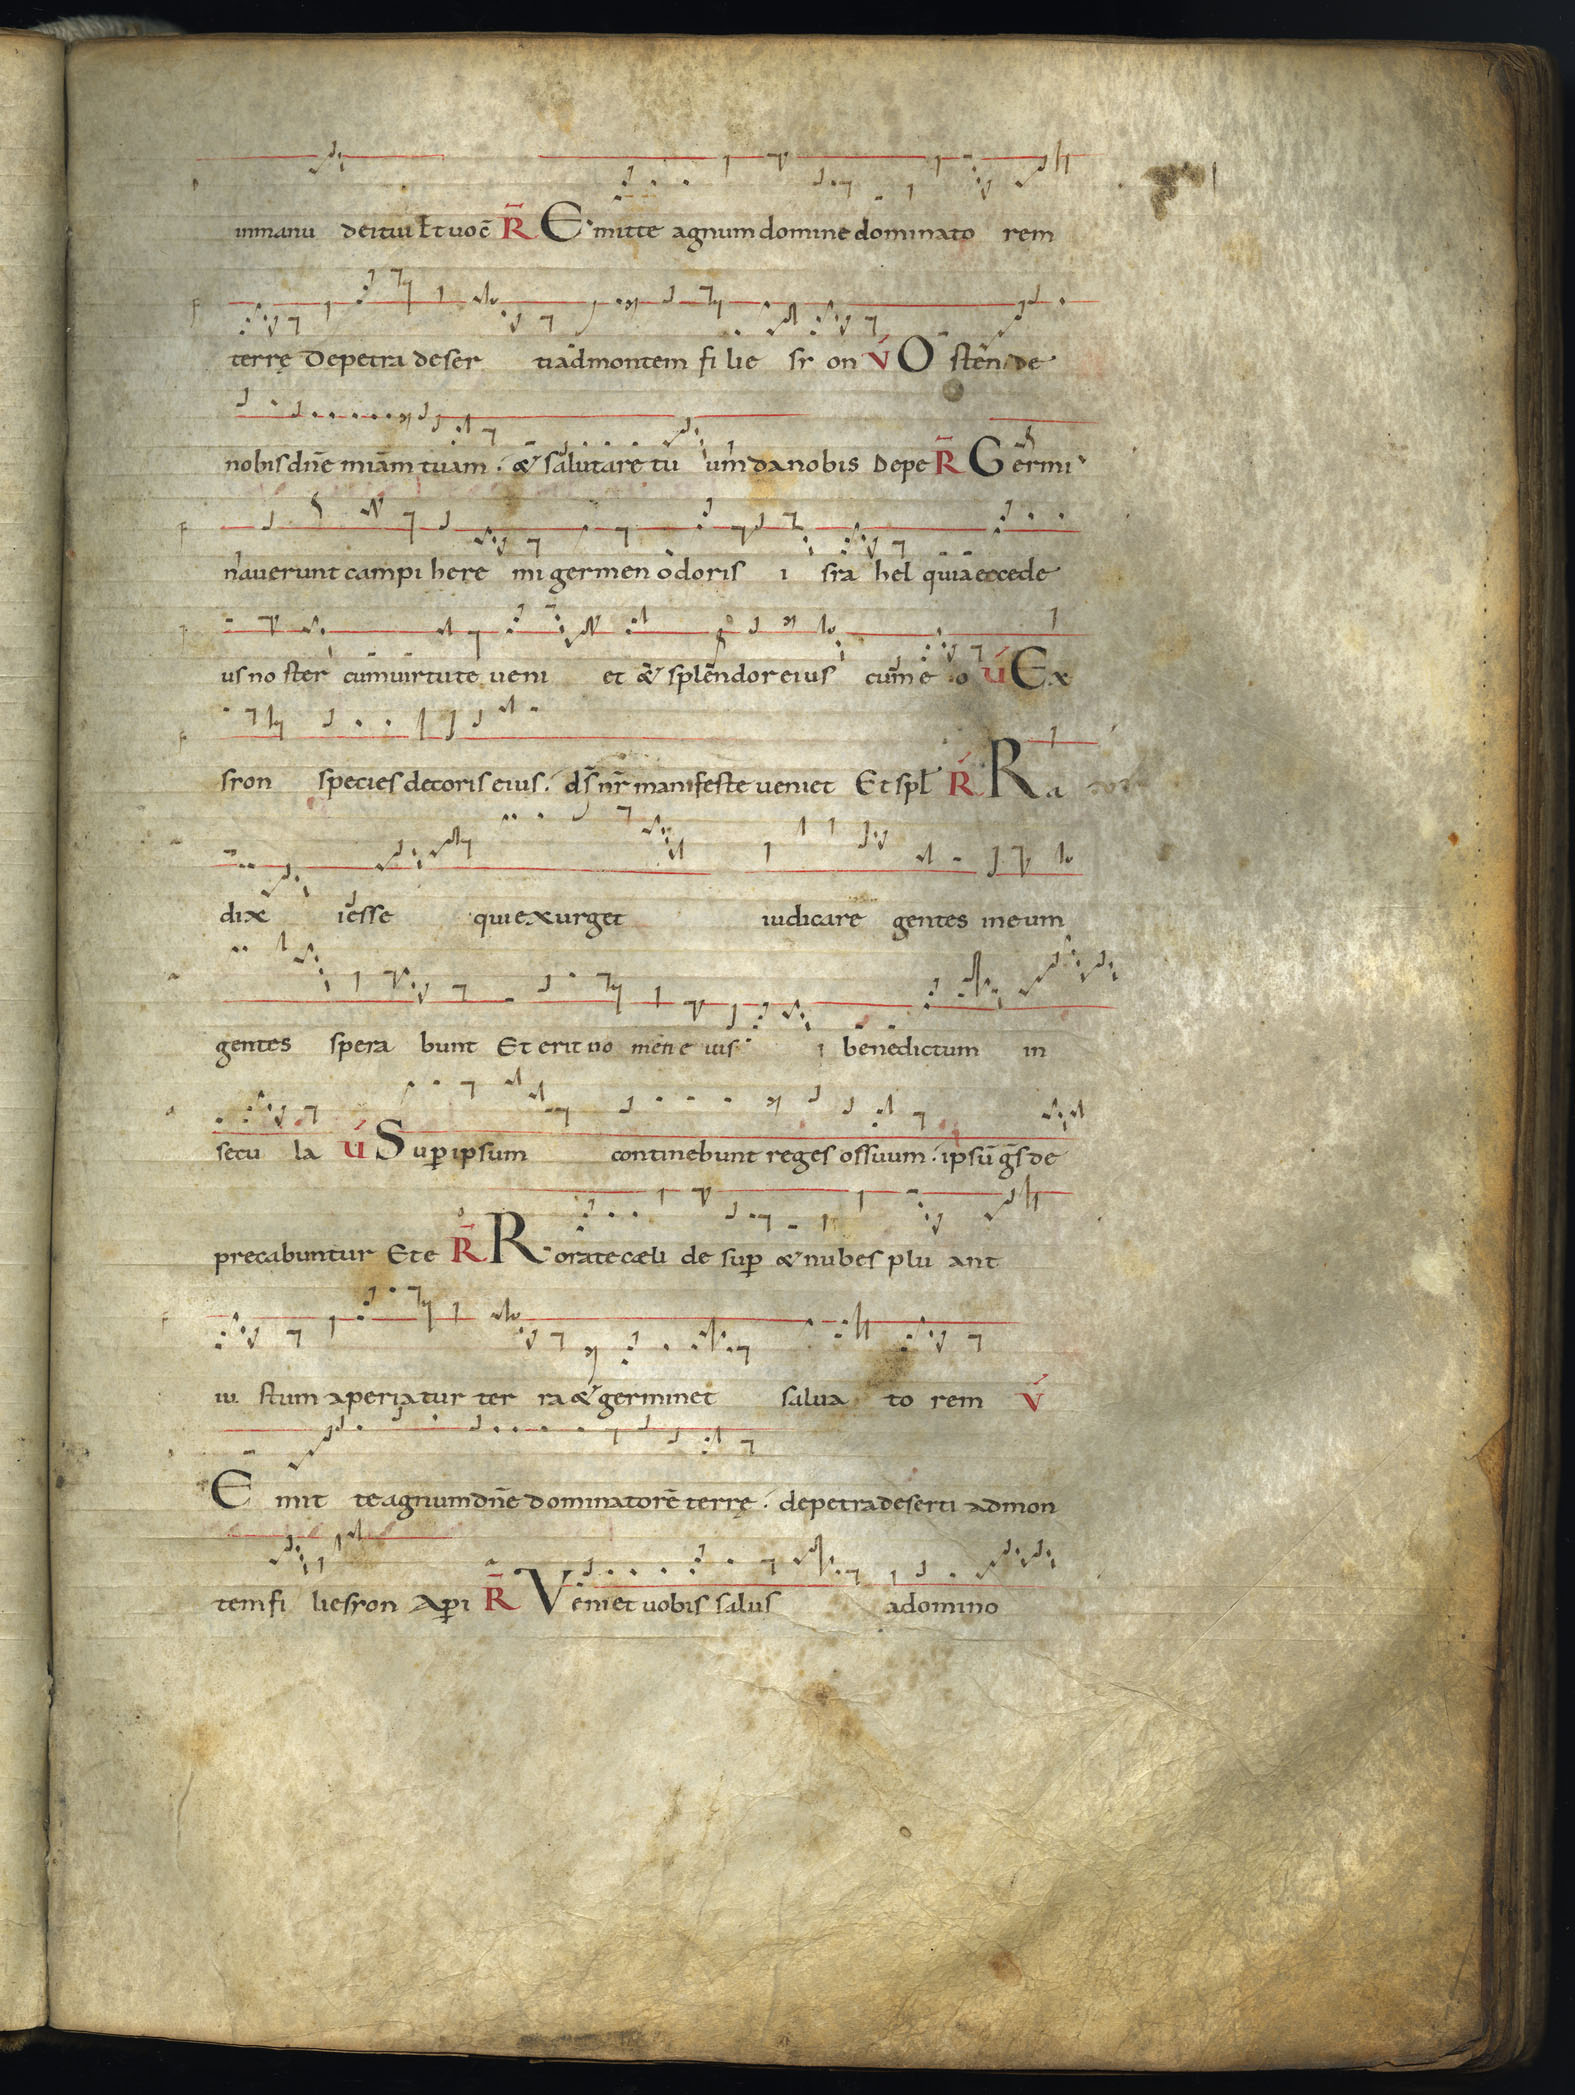 inmanu dei tui Et uocē R̄ Emitte agnum domine dominato rem
terrę Depetra deser ti admontem fi lie sr on V́ O stende
nobis dn̄e miām tuam. & salutare tu um da nobis Depe R̄ Germi
nauerunt campi here mi germen odoris i sra hel quia ecce de
us no ster cum uirtute ueni et & splendor eius cum e o V́ Ex
sron species decoris eius. ds̄ nr̄ manifeste ueniet Et spl R̄ Ra
dix iesse qui exurget iudicare gentes in eum
gentes spera bunt Et erit no men e ius i benedictum in
secu la V́ Sup ipsum continebunt reges os suum. ipsū gs̄ de
precabuntur Et e R̄ Rorate cæli de sup & nubes plu ant
iu stum aperiatur ter ra & germinet salua to rem V́
Emit te agnum dn̄e dominatorē terrę. de petra deserti ad mon
tem fi lie sron Api R̄ Veniet uobis salus a domino